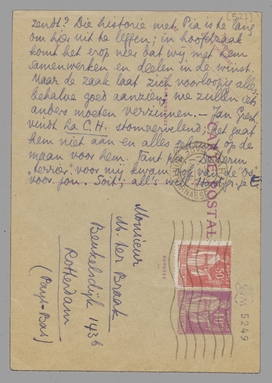 zendt? Die historie met Pia is te lang
om hier uit te leggen; in hoofdzaak
komt het erop neer dat wij met hem
samenwerken en deelen in de winst.
Maar de zaak laat zich voorloopig alles
behalve goed aanzien, we zullen iets
anders moeten verzinnen. — Jan Grest
vindt la C.H. stomvervelend; het gaat
hem niet aan en alles
maan voor hem. Tant pis. De term
"terrier" voor mij kwam ook van de
voor jou. Soit, all's well that
E.
CARTE POSTALE
Monsieur
M. ter Braak
Beukelsdijk 143b
Rotterdam
(Pays-Bas)
50
5249